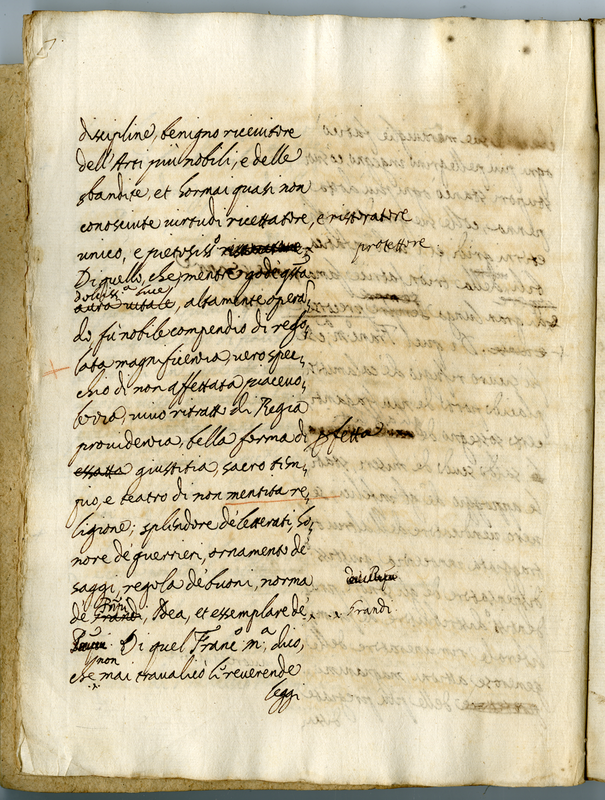 discipline, benigno ricevitore
dell'Arti più nobili, e delle
sbandite, et hormai quasi non
conosciute virtudi ricettatore, e ristoratore
unico, e pietosiss.o ristoratore protettore
Di quello, che mentre godè q.sta
dolciss.a luce
aura vitale, altamente operan
do, fù nobile compendio di rego
lata magnificenza, vero spec
chio di non affettata piacevo
lezza, vivo ritratto di Regia
providenza, bella forma di p̱fetta
essatta giustitia, sacro tem
pio, e teatro di non mentita re
ligione; splendore de' letterati, ho
nore de' guerrieri, ornamento de'
saggi, regola de' buoni, norma
de' Grandi, Idea, et essemplare de' Grandi.
Di quel Franc.o m.a dico,
non
che mai travalicò li reverende
leggi